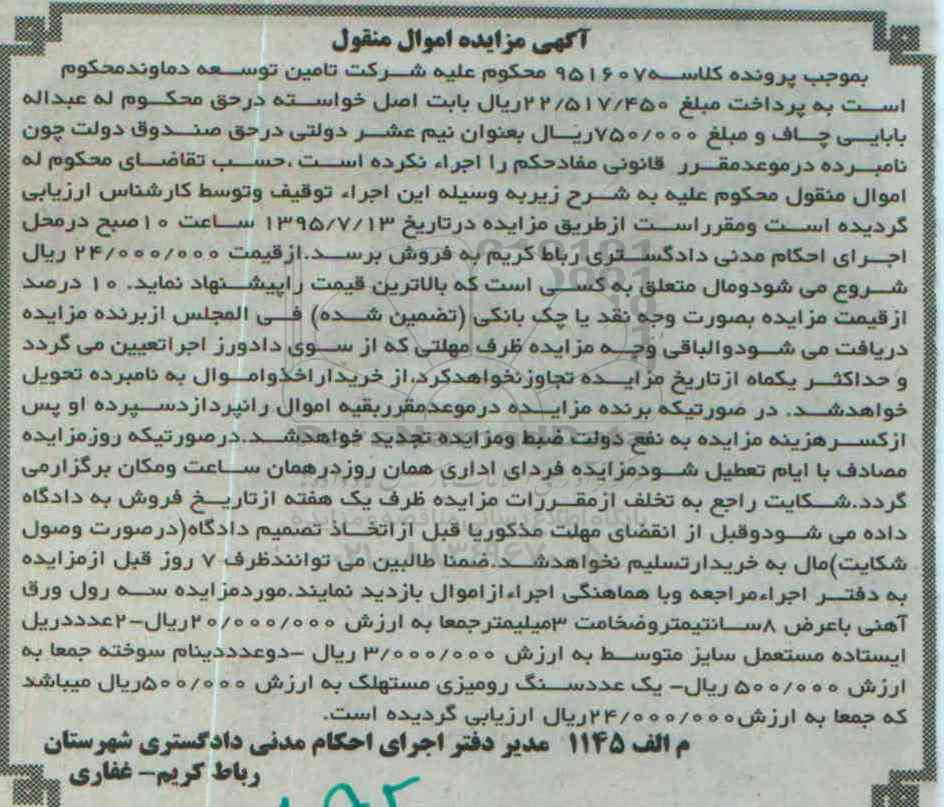 آگهی مزایده اموال منقول
بموجب پرونده کلاسه۹۵۱۶۰۷ محکوم علیه شرکت تامین توسعه دماوندمحکوم
است به پرداخت مبلغ ۲۲/۵۱۷/۴۵۰ریال بابت اصل خواسته درحق محکوم له عبداله
بابایی چاف و مبلغ ۷۵۰/۰۰۰ریال بعنوان نیم عشر دولتی درحق صندوق دولت چون
نامبرده درموعدمقرر قانونی مفادحکم را اجراء نکرده است ،حسب تقاضای محکوم له
اموال منقول محکوم علیه به شرح زیربه وسیله این اجراء توقیف وتوسط کارشناس ارزیابی
گردیده است ومقرراست ازطریق مزایده درتاریخ ۱۳۹۵/۷/۱۳ ساعت ۱۰صبح درمحل
اجرای احکام مدنی دادگستری رباط کریم به فروش برسد.ازقیمت ۲۴/۰۰۰/۰۰۰ ریال
شروع می شودومال متعلق به کسی است که بالاترین قیمت راپیشنهاد نماید. ۱۰ درصد
ازقیمت مزایده بصورت وجه نقد یا چک بانکی (تضمین شده) فی المجلس ازبرنده مزایده
دریافت می شودوالباقی وجه مزایده ظرف مهلتی که از سوی دادورز اجراتعیین می گردد
و حداکثر یکماه ازتاریخ مزایده تجاوزنخواهدکرد،از خریداراخذواموال به نامبرده تحویل
خواهدشد. در صورتیکه برنده مزایده درموعدمقرربقیه اموال رانپردازدسپرده او پس
ازکسرهزینه مزایده به نفع دولت ضبط ومزایده تجدید خواهدشد.درصورتیکه روزمزایده
مصادف با ایام تعطیل شودمزایده فردای اداری همان روزدرهمان ساعت ومکان برگزارمی
گردد.شکایت راجع به تخلف ازمقررات مزایده ظرف یک هفته ازتاریخ فروش به دادگاه
داده می شودوقبل از انقضای مهلت مذکوریا قبل ازاتخاذ تصمیم دادگاه(درصورت وصول
شکایت)مال به خریدارتسلیم نخواهدشد.ضمنا طالبین می توانندظرف ۷ روز قبل ازمزایده
به دفتر اجراءمراجعه وبا هماهنگی اجراءازاموال بازدید نمایند.موردمزایده سه رول ورق
آهنی باعرض ۸سانتیمتروضخامت ۳میلیمترجمعا به ارزش ۲۰/۰۰۰/۰۰۰ریال-۲عدددریل
ایستاده مستعمل سایز متوسط به ارزش ۳/۰۰۰/۰۰۰ ریال -دوعدددینام سوخته جمعا به
ارزش ۵۰۰/۰۰۰ ریال- یک عددسنگ رومیزی مستهلک به ارزش ۵۰۰/۰۰۰ریال میباشد
که جمعا به ارزش۲۴/۰۰۰/۰۰۰ریال ارزیابی گردیده است.
م الف ۱۱۴۵ مدیر دفتر اجرای احکام مدنی دادگستری شهرستان
رباط کریم- غفاری